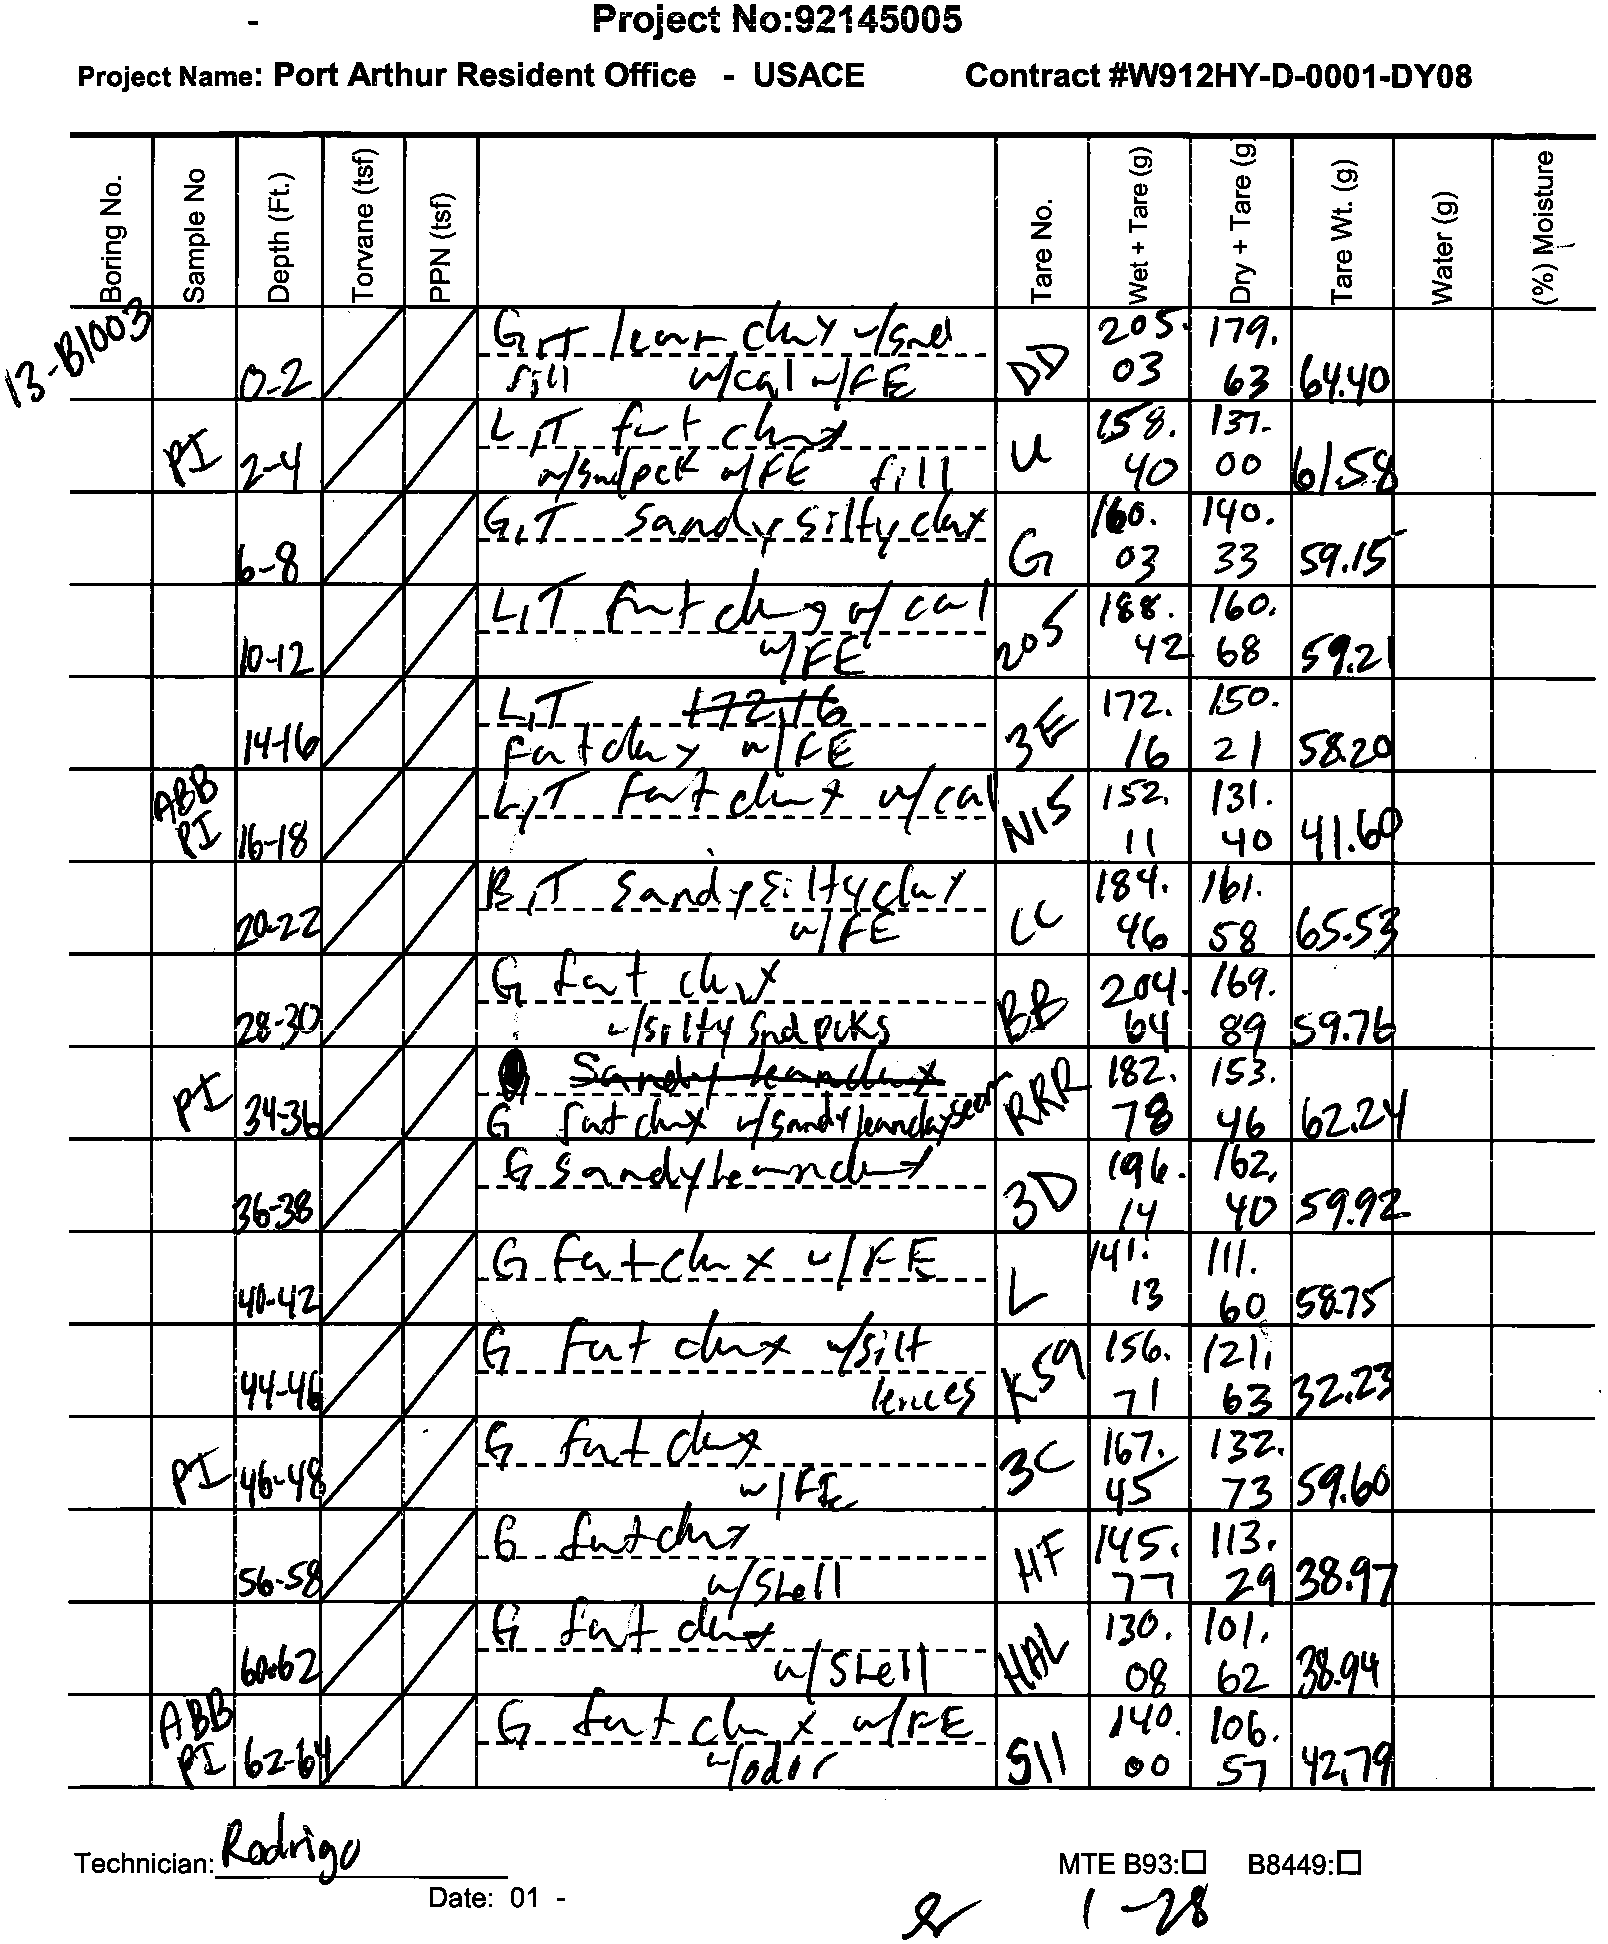 Project No:92145005
Project Name: Port Arthur Resident Office - USACE Contract #W912HY-D-0001-DY08
Boring No. Sample No Depth (Ft.) Torvane (tsf) PPN (tsf) Tare No. Wet + Tare (g) Dry + Tare (g) Tare Wt. (g) Water (g) (%) Moisture
13-B1003
G,T lean clay w/snd 205. 179.
0-2 fill w/cal w/FE DD 03 63 64.40
L,T fat clay 158. 137.
PI 2-4 w/snd pck w/FE fill U 40 00 61.58
G,T Sandy silty clay 160. 140.
6-8 G 03 33 59.15
L,T fat clay w/ cal 188. 160.
10-12 w/FE 205 42 68 59.21
L,T 172.16 172. 150.
14-16 fat clay w/FE 3E 16 21 58.20
ABB L,T fat clay w/cal 152. 131.
PI 16-18 N15 11 40 41.60
B,T Sandy Silty clay 184. 161.
20-22 w/FE CC 46 58 65.53
G fat clay 204. 169.
28-30 w/silty snd pcks BB 64 89 59.76
G Sandy lean clay 182. 153.
PI 34-36 G fat clay w/sandy lean clay seam RRR 78 46 62.24
G Sandy lean clay 196. 162.
36-38 3D 14 40 59.92
G Fat clay w/FE 141. 111.
40-42 L 13 60 58.75
G Fat clay w/silt 156. 121.
44-46 lences K59 71 63 32.23
G fat clay 167. 132.
PI 46-48 w/FE 3C 45 73 59.60
G fat clay 145. 113.
56-58 w/Shell HF 77 29 38.97
G fat clay 130. 101.
60-62 w/Shell HAL 08 62 38.94
ABB G fat clay w/FE 140. 106.
PI 62-64 w/odor S11 00 57 42.79
Technician: Rodrigo MTE B93:☐ B8449:☐
Date: 01 -
1-28